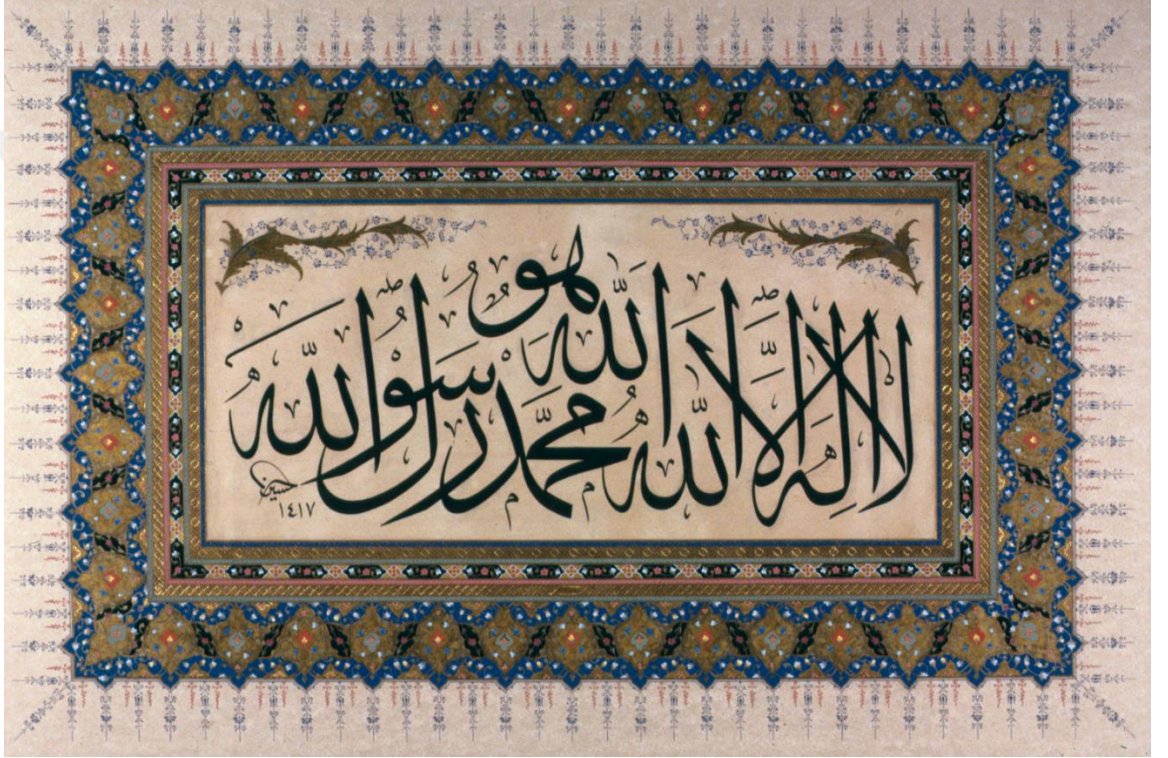 هو
لا اله الا الله الله محمد رسول الله
حسين
١٤١٧